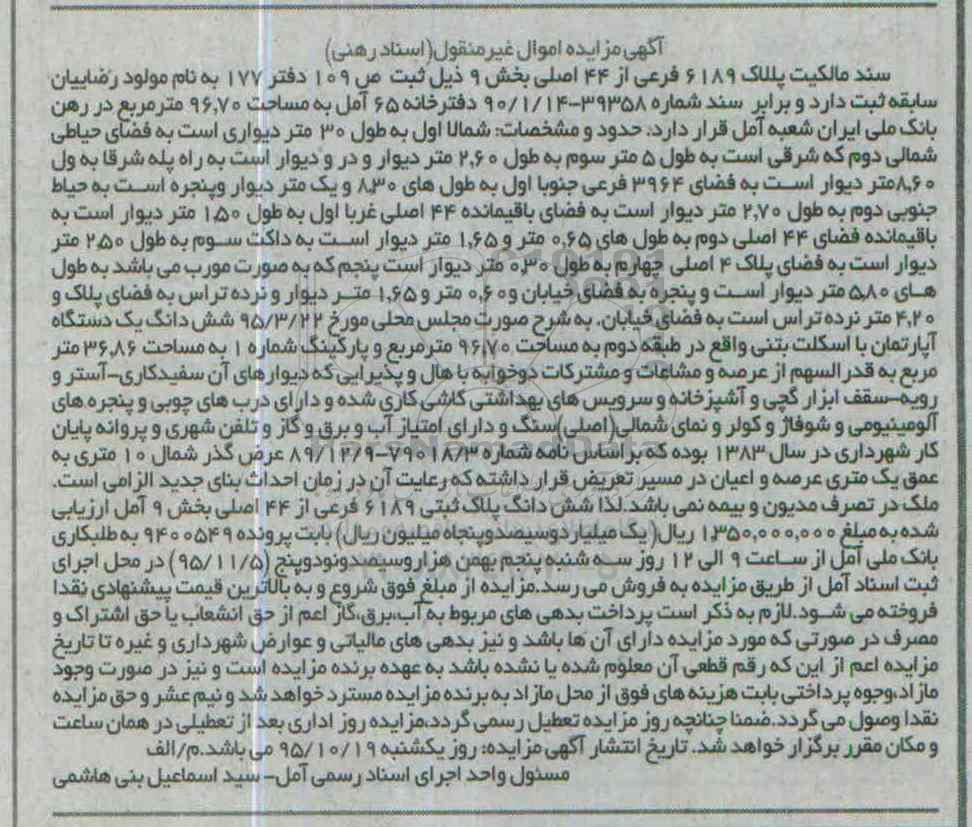 آگهی مزایده اموال غیرمنقول(اسناد رهنی)
سند مالکیت پلاک ۶۱۸۹ فرعی از ۴۴ اصلی بخش ۹ ذیل ثبت ص ۱۰۹ دفتر ۱۷۷ به نام مولود رضاییان
سابقه ثبت دارد و برابر سند شماره ۳۹۳۵۸-۹۰/۱/۱۴ دفترخانه ۶۵ آمل به مساحت ۹۶,۷۰ مترمربع در رهن
بانک ملی ایران شعبه آمل قرار دارد. حدود و مشخصات: شمالا اول به طول ۳۰ متر دیواری است به فضای حیاطی
شمالی دوم که شرقی است به طول ۵ متر سوم به طول ۲,۶۰ متر دیوار و در و دیوار است به راه پله شرقا به ول
۸,۶۰متر دیوار است به فضای ۳۹۶۴ فرعی جنوبا اول به طول های ۸,۳۰ و یک متر دیوار وپنجره است به حیاط
جنوبی دوم به طول ۲,۷۰ متر دیوار است به فضای باقیمانده ۴۴ اصلی غربا اول به طول ۱,۵۰ متر دیوار است به
باقیمانده فضای ۴۴ اصلی دوم به طول های ۰,۶۵ متر و ۱,۶۵ متر دیوار است به داکت سوم به طول ۲,۵۰ متر
دیوار است به فضای پلاک ۴ اصلی چهارم به طول ۰,۳۰ متر دیوار است پنجم که به صورت مورب می باشد به طول
های ۵,۸۰ متر دیوار است و پنجره به فضای خیابان و ۰,۶۰ متر و ۱,۶۵ متر دیوار و نرده تراس به فضای پلاک و
۴,۲۰ متر نرده تراس است به فضای خیابان. به شرح صورت مجلس محلی مورخ ۹۵/۳/۲۲ شش دانگ یک دستگاه
آپارتمان با اسکلت بتنی واقع در طبقه دوم به مساحت ۹۶,۷۰ مترمربع و پارکینگ شماره ۱ به مساحت ۳۶,۸۶ متر
مربع به قدرالسهم از عرصه و مشاعات و مشترکات دوخوابه با هال و پذیرایی که دیوارهای آن سفیدکاری-آستر و
رویه-سقف ابزار گچی و آشپزخانه و سرویس های بهداشتی کاشی کاری شده و دارای درب های چوبی و پنجره های
آلومینیومی و شوفاژ و کولر و نمای شمالی(اصلی)سنگ و دارای امتیاز آب و برق و گاز و تلفن شهری و پروانه پایان
کار شهرداری در سال ۱۳۸۳ بوده که بر اساس نامه شماره ۷۹۰۱۸/۳-۸۹/۱۲/۹ عرض گذر شمال ۱۰ متری به
عمق یک متری عرصه و اعیان در مسیر تعریض قرار داشته که رعایت آن در زمان احداث بنای جدید الزامی است.
ملک در تصرف مدیون و بیمه نمی باشد.لذا شش دانگ پلاک ثبتی ۶۱۸۹ فرعی از ۴۴ اصلی بخش ۹ آمل ارزیابی
شده به مبلغ ۱,۳۵۰,۰۰۰,۰۰۰ ریال( یک میلیاردوسیصدوپنجاه میلیون ریال) بابت پرونده ۹۴۰۰۵۴۹ به طلبکاری
بانک ملی آمل از ساعت ۹ الی ۱۲ روز سه شنبه پنجم بهمن هزاروسیصدونودوپنج (۹۵/۱۱/۵) در محل اجرای
ثبت اسناد آمل از طریق مزایده به فروش می رسد.مزایده از مبلغ فوق شروع و به بالاترین قیمت پیشنهادی نقدا
فروخته می شود.لازم به ذکر است پرداخت بدهی های مربوط به آب،برق،گاز اعم از حق انشعاب یا حق اشتراک و
مصرف در صورتی که مورد مزایده دارای آن ها باشد و نیز بدهی های مالیاتی و عوارض شهرداری و غیره تا تاریخ
مزایده اعم از این که رقم قطعی آن معلوم شده یا نشده باشد به عهده برنده مزایده است و نیز در صورت وجود
مازاد،وجوه پرداختی بابت هزینه های فوق از محل مازاد به برنده مزایده مسترد خواهد شد و نیم عشر و حق مزایده
نقدا وصول می گردد.ضمنا چنانچه روز مزایده تعطیل رسمی گردد،مزایده روز اداری بعد از تعطیلی در همان ساعت
و مکان مقرر برگزار خواهد شد. تاریخ انتشار آگهی مزایده: روز یکشنبه ۹۵/۱۰/۱۹ می باشد.م/الف
مسئول واحد اجرای اسناد رسمی آمل- سید اسماعیل بنی هاشمی